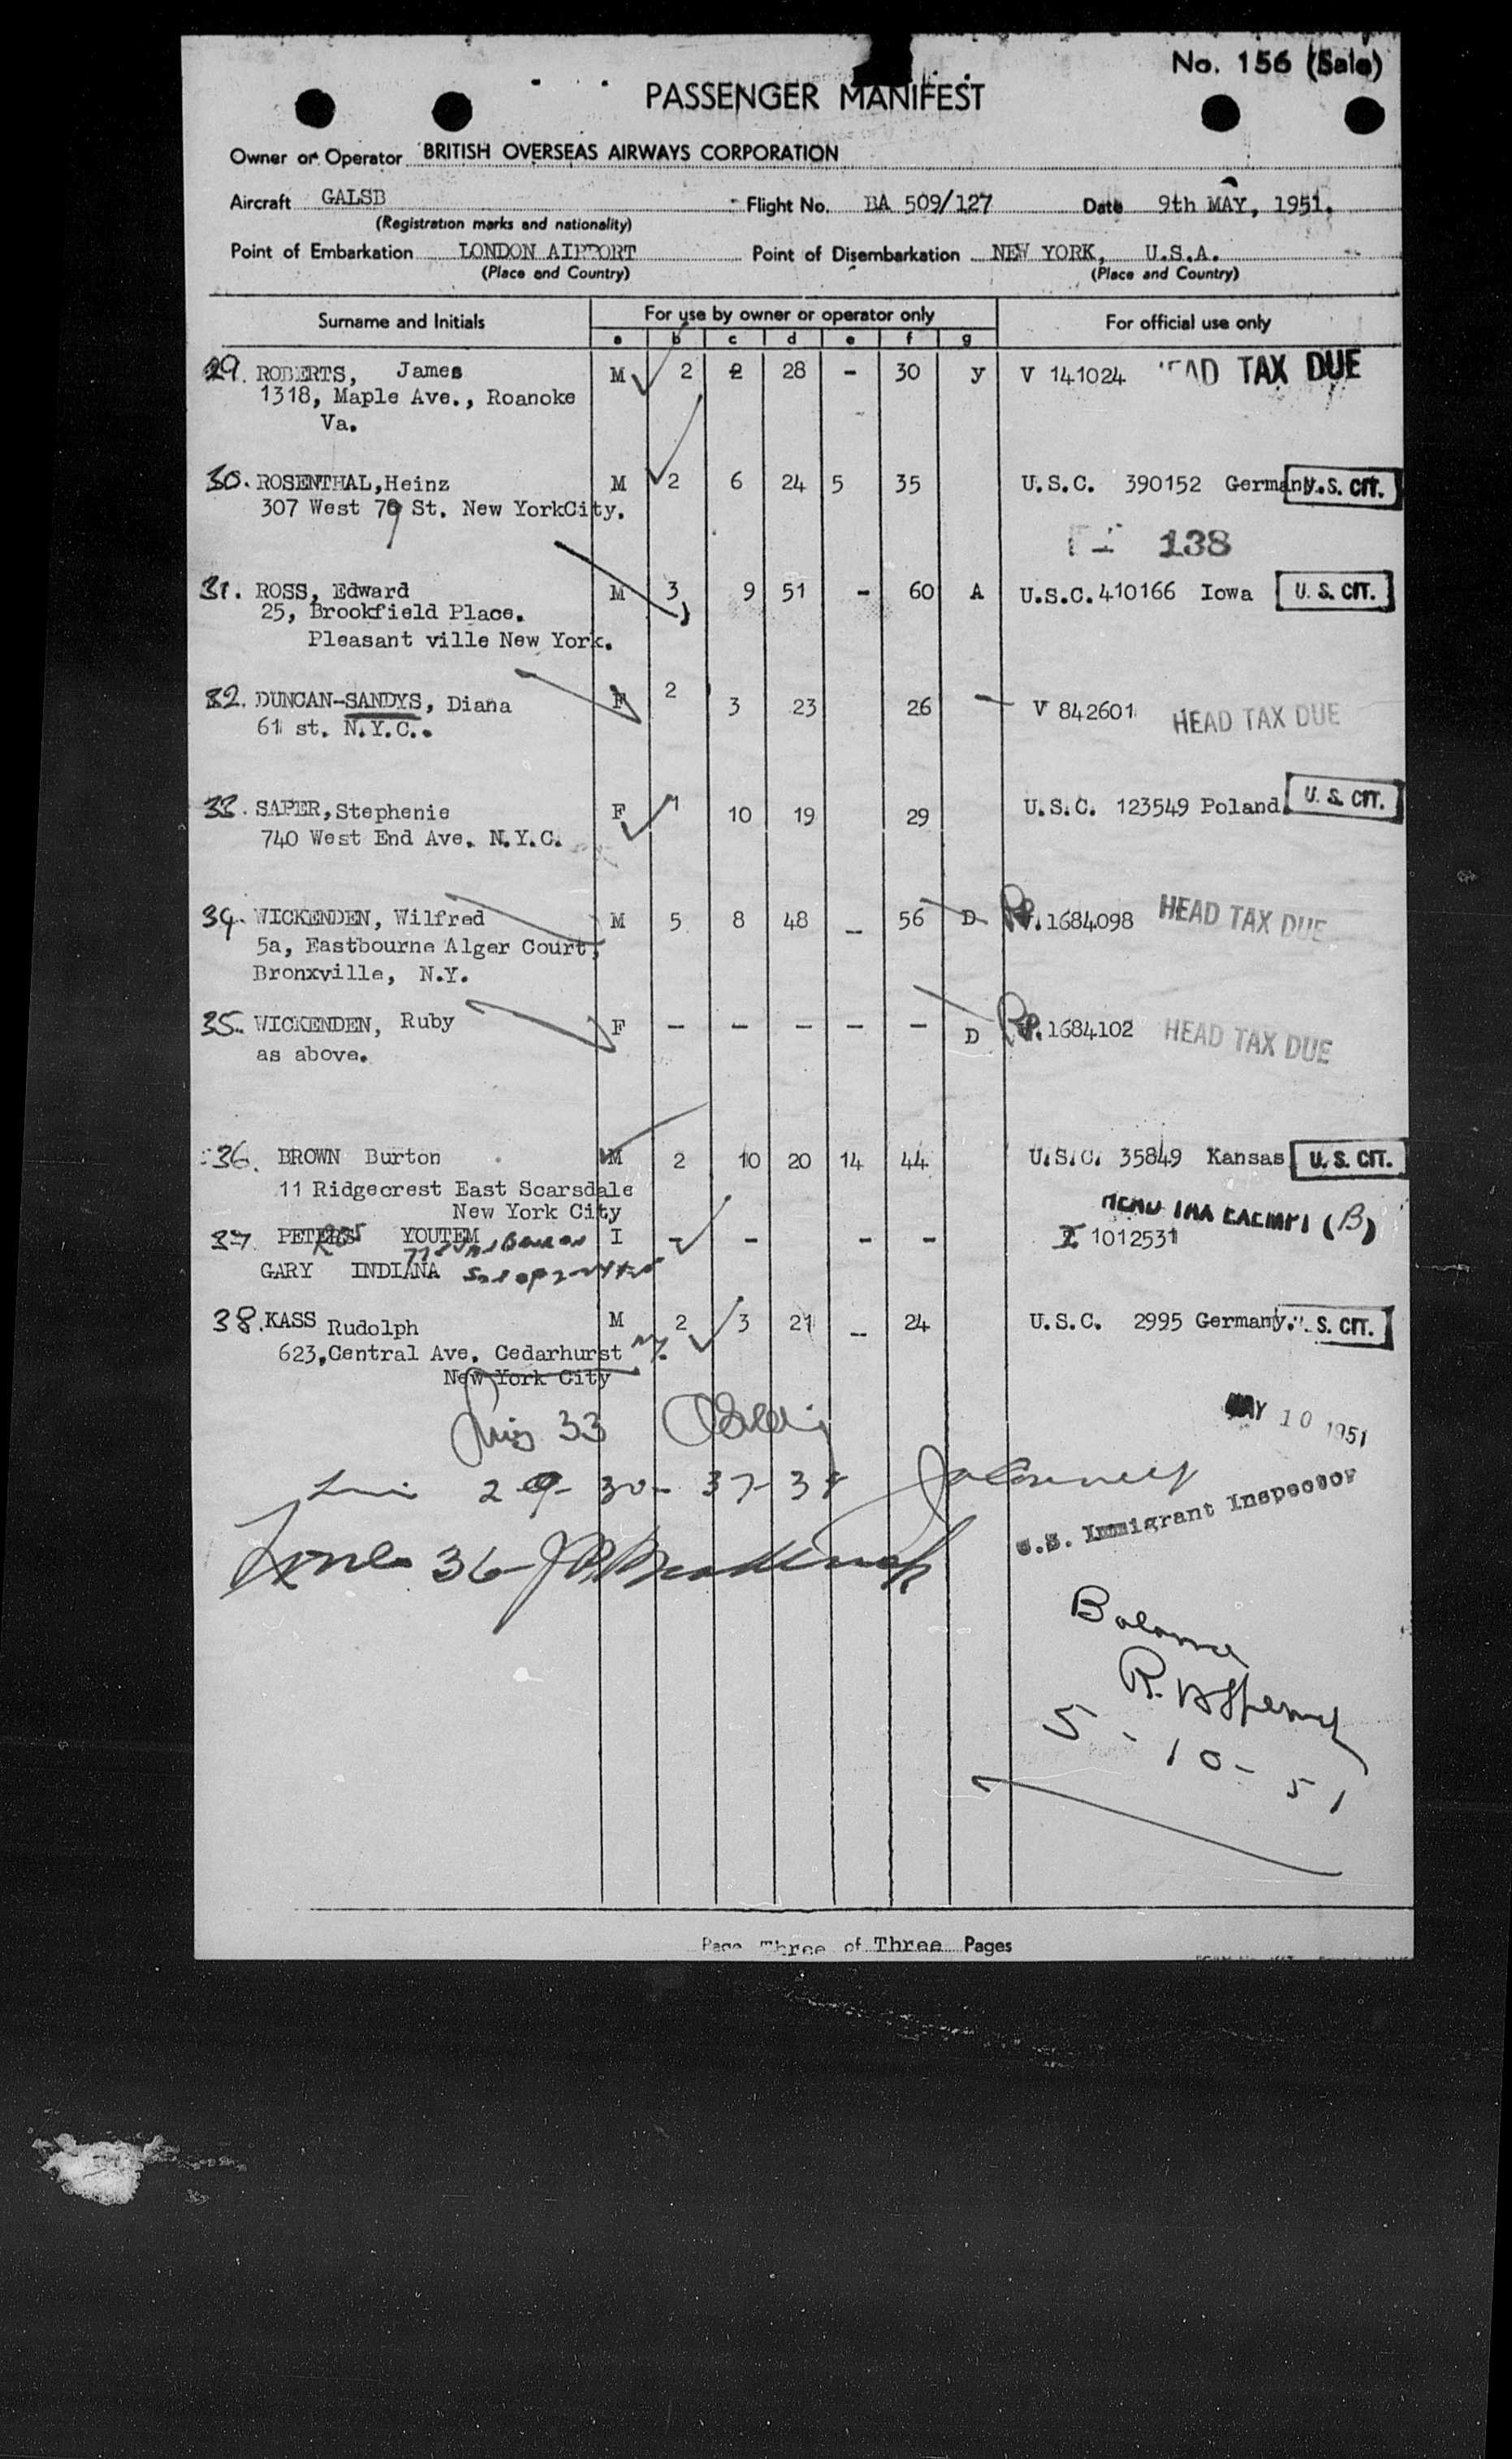 No. 156 (Sale)
PASSENGER MANIFEST
Owner or Operator BRITISH OVERSEAS AIRWAYS CORPORATION
Aircraft GALSB Flight No. BA 509/127 Date 9th MAY, 1951.
(Registration marks and nationality)
Point of Embarkation LONDON AIRPORT Point of Disembarkation NEW YORK, U.S.A.
(Place and Country) (Place and Country)
Surname and Initials For use by owner or operator only For official use only
a b c d e f g
29. ROBERTS, James M 2 2 28 - 30 y V 141024 HEAD TAX DUE
1318, Maple Ave., Roanoke
Va.
30. ROSENTHAL,Heinz M 2 6 24 5 35 U.S.C. 390152 Germany. U.S. CIT.
307 West 79 St. New YorkCity.
138
31. ROSS, Edward M 3 9 51 - 60 A U.S.C.410166 Iowa U. S. CIT.
25, Brookfield Place.
Pleasant ville New York.
32. DUNCAN-SANDYS, Diana F 2 3 23 26 V 842601 HEAD TAX DUE
61 st. N.Y.C..
33. SAPER,Stephenie F 1 10 19 29 U.S.C. 123549 Poland U. S. CIT.
740 West End Ave. N.Y.C.
34. WICKENDEN, Wilfred M 5 8 48 - 56 D 1684098 HEAD TAX DUE
5a, Eastbourne Alger Court,
Bronxville, N.Y.
35. WICKENDEN, Ruby F - - - - - D 1684102 HEAD TAX DUE
as above.
36. BROWN Burton M 2 10 20 14 44 U.S.C. 35849 Kansas U. S. CIT.
11 Ridgecrest East Scarsdale
New York City
HEAD TAX EXEMPT (B)
37 YOUTEM I - - - - 1012531
GARY INDIANA
38. KASS Rudolph M 2 3 21 - 24 U.S.C. 2995 Germany. S. CIT.
623,Central Ave. Cedarhurst N.Y.
New York City
MAY 10 1951
33
29-30-37-38
U.S. Immigrant Inspector
Line 36
Balance
5-10-51
Page Three of Three Pages